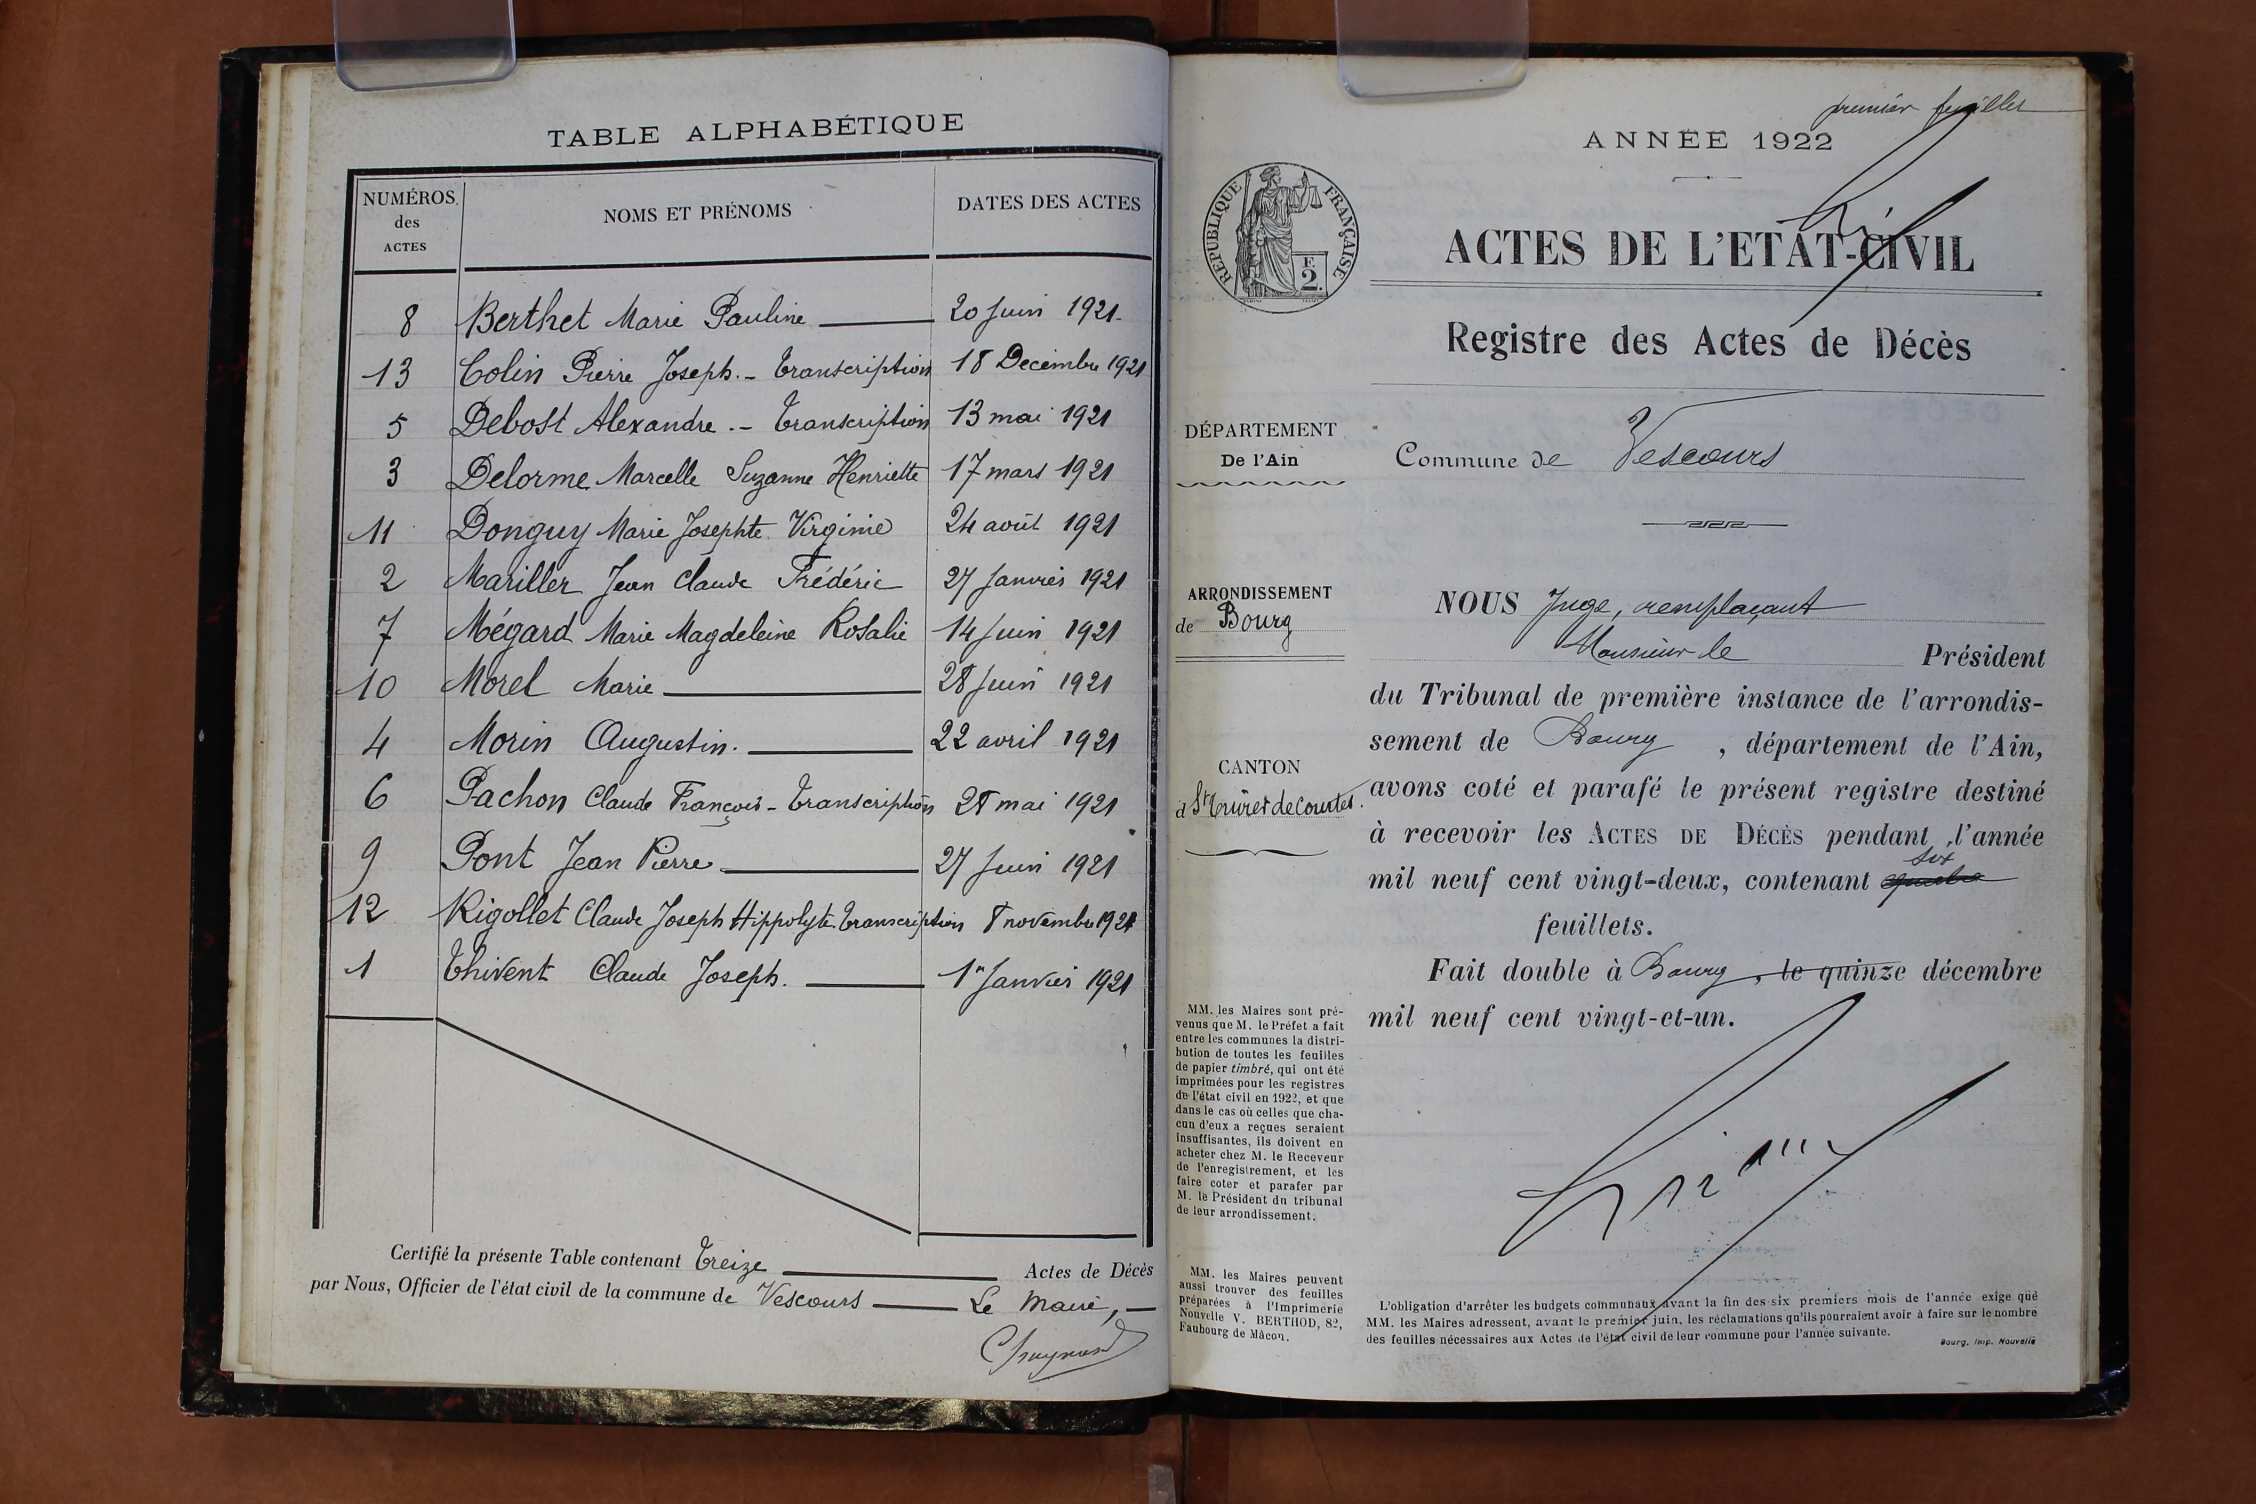 TABLE ALPHABÉTIQUE
NUMÉROS
des
ACTES
NOMS ET PRÉNOMS
DATES DES ACTES
8 Berthet Marie Pauline 20 Juin 1921
13 Colin Pierre Joseph. - Transcription 18 Décembre 1921
5 Debost Alexandre. - Transcription 13 mai 1921
3 Delorme Marcelle Suzanne Henriette 17 mars 1921
11 Donguy Marie Josephte Virginie 24 août 1921
2 Mariller Jean Claude Frédéric 27 Janvier 1921
7 Mégard Marie Magdeleine Rosalie 14 Juin 1921
10 Morel Marie 28 Juin 1921
4 Morin Augustin. 22 avril 1921
6 Pachon Claude François - Transcription 28 mai 1921
9 Pont Jean Pierre 27 Juin 1921
12 Rigollet Claude Joseph Hippolyte. Transcription 8 novembre 1921
1 Thivent Claude Joseph. 1er Janvier 1921
Certifié la présente Table contenant Treize Actes de Décès
par Nous, Officier de l'état civil de la commune de Vescours Le Maire,
premier feuillet
ANNÉE 1922
RÉPUBLIQUE FRANÇAISE
F.
2.
ACTES DE L'ETAT-CIVIL
Registre des Actes de Décès
DÉPARTEMENT
De l'Ain
Commune de Vescours
ARRONDISSEMENT
de Bourg
NOUS Juge, remplaçant
Monsieur le Président
du Tribunal de première instance de l'arrondis-
sement de Bourg, département de l'Ain,
CANTON
d St Trivier de Courtes.
avons coté et parafé le présent registre destiné
à recevoir les ACTES DE DÉCÈS pendant l'année
six
mil neuf cent vingt-deux, contenant quatre
feuillets.
Fait double à Bourg, le quinze décembre
mil neuf cent vingt-et-un.
MM. les Maires sont pré-
venus que M. le Préfet a fait
entre les communes la distri-
bution de toutes les feuilles
de papier timbré, qui ont été
imprimées pour les registres
de l'état civil en 1922, et que
dans le cas où celles que cha-
cun d'eux a reçues seraient
insuffisantes, ils doivent en
acheter chez M. le Receveur
de l'enregistrement, et les
faire coter et parafer par
M. le Président du tribunal
de leur arrondissement.
MM. les Maires peuvent
aussi trouver des feuilles
préparées à l'Imprimerie
Nouvelle V. BERTHOD, 82,
Faubourg de Mâcon.
L'obligation d'arrêter les budgets communaux avant la fin des six premiers mois de l'année exige que
MM. les Maires adressent, avant le premier juin, les réclamations qu'ils pourraient avoir à faire sur le nombre
des feuilles nécessaires aux Actes de l'état civil de leur commune pour l'année suivante.
Bourg, Imp. Nouvelle